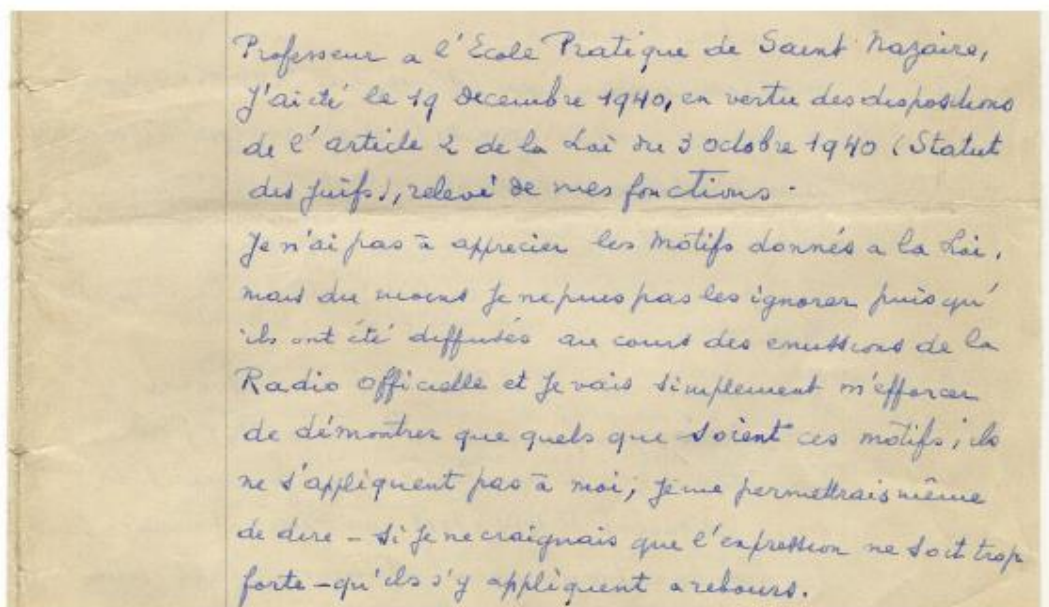 Professeur a l'École Pratique de Saint Nazaire,
J'ai été le 19 décembre 1940, en vertu des dispositions
de l'article 2 de la Loi du 3 octobre 1940 (Statut
des Juifs), relevé de mes fonctions.
Je n'ai pas à apprécier les motifs donnés a la Loi,
mais du moins je ne puis pas les ignorer puisqu'
ils ont été diffusés au cours des emissions de la
Radio Officielle et je vais simplement m'efforcer
de démontrer que quels que soient ces motifs, ils
ne s'appliquent pas à moi; je me permettrais même
de dire - si je ne craignais que l'expression ne soit trop
forte - qu'ils s'y appliquent a rebours.